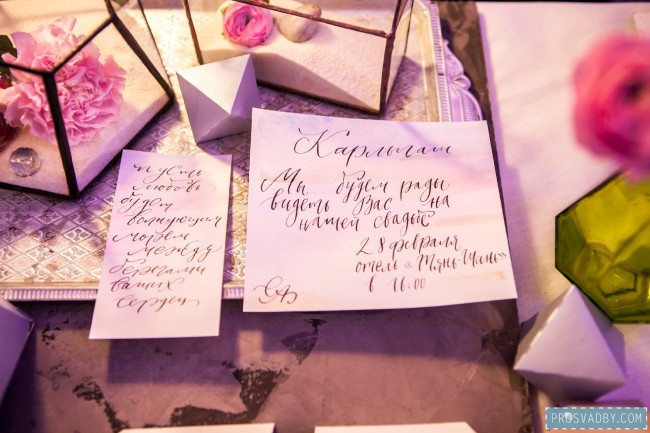 пусть
любовь
будет
волнующим
морем
между
берегами
ваших
сердец
Карлыгаш
Мы будем рады
видеть Вас на
нашей свадьбе
28 февраля
отель «Тянь-Шань»
в 16:00
PROSVADBY.COM